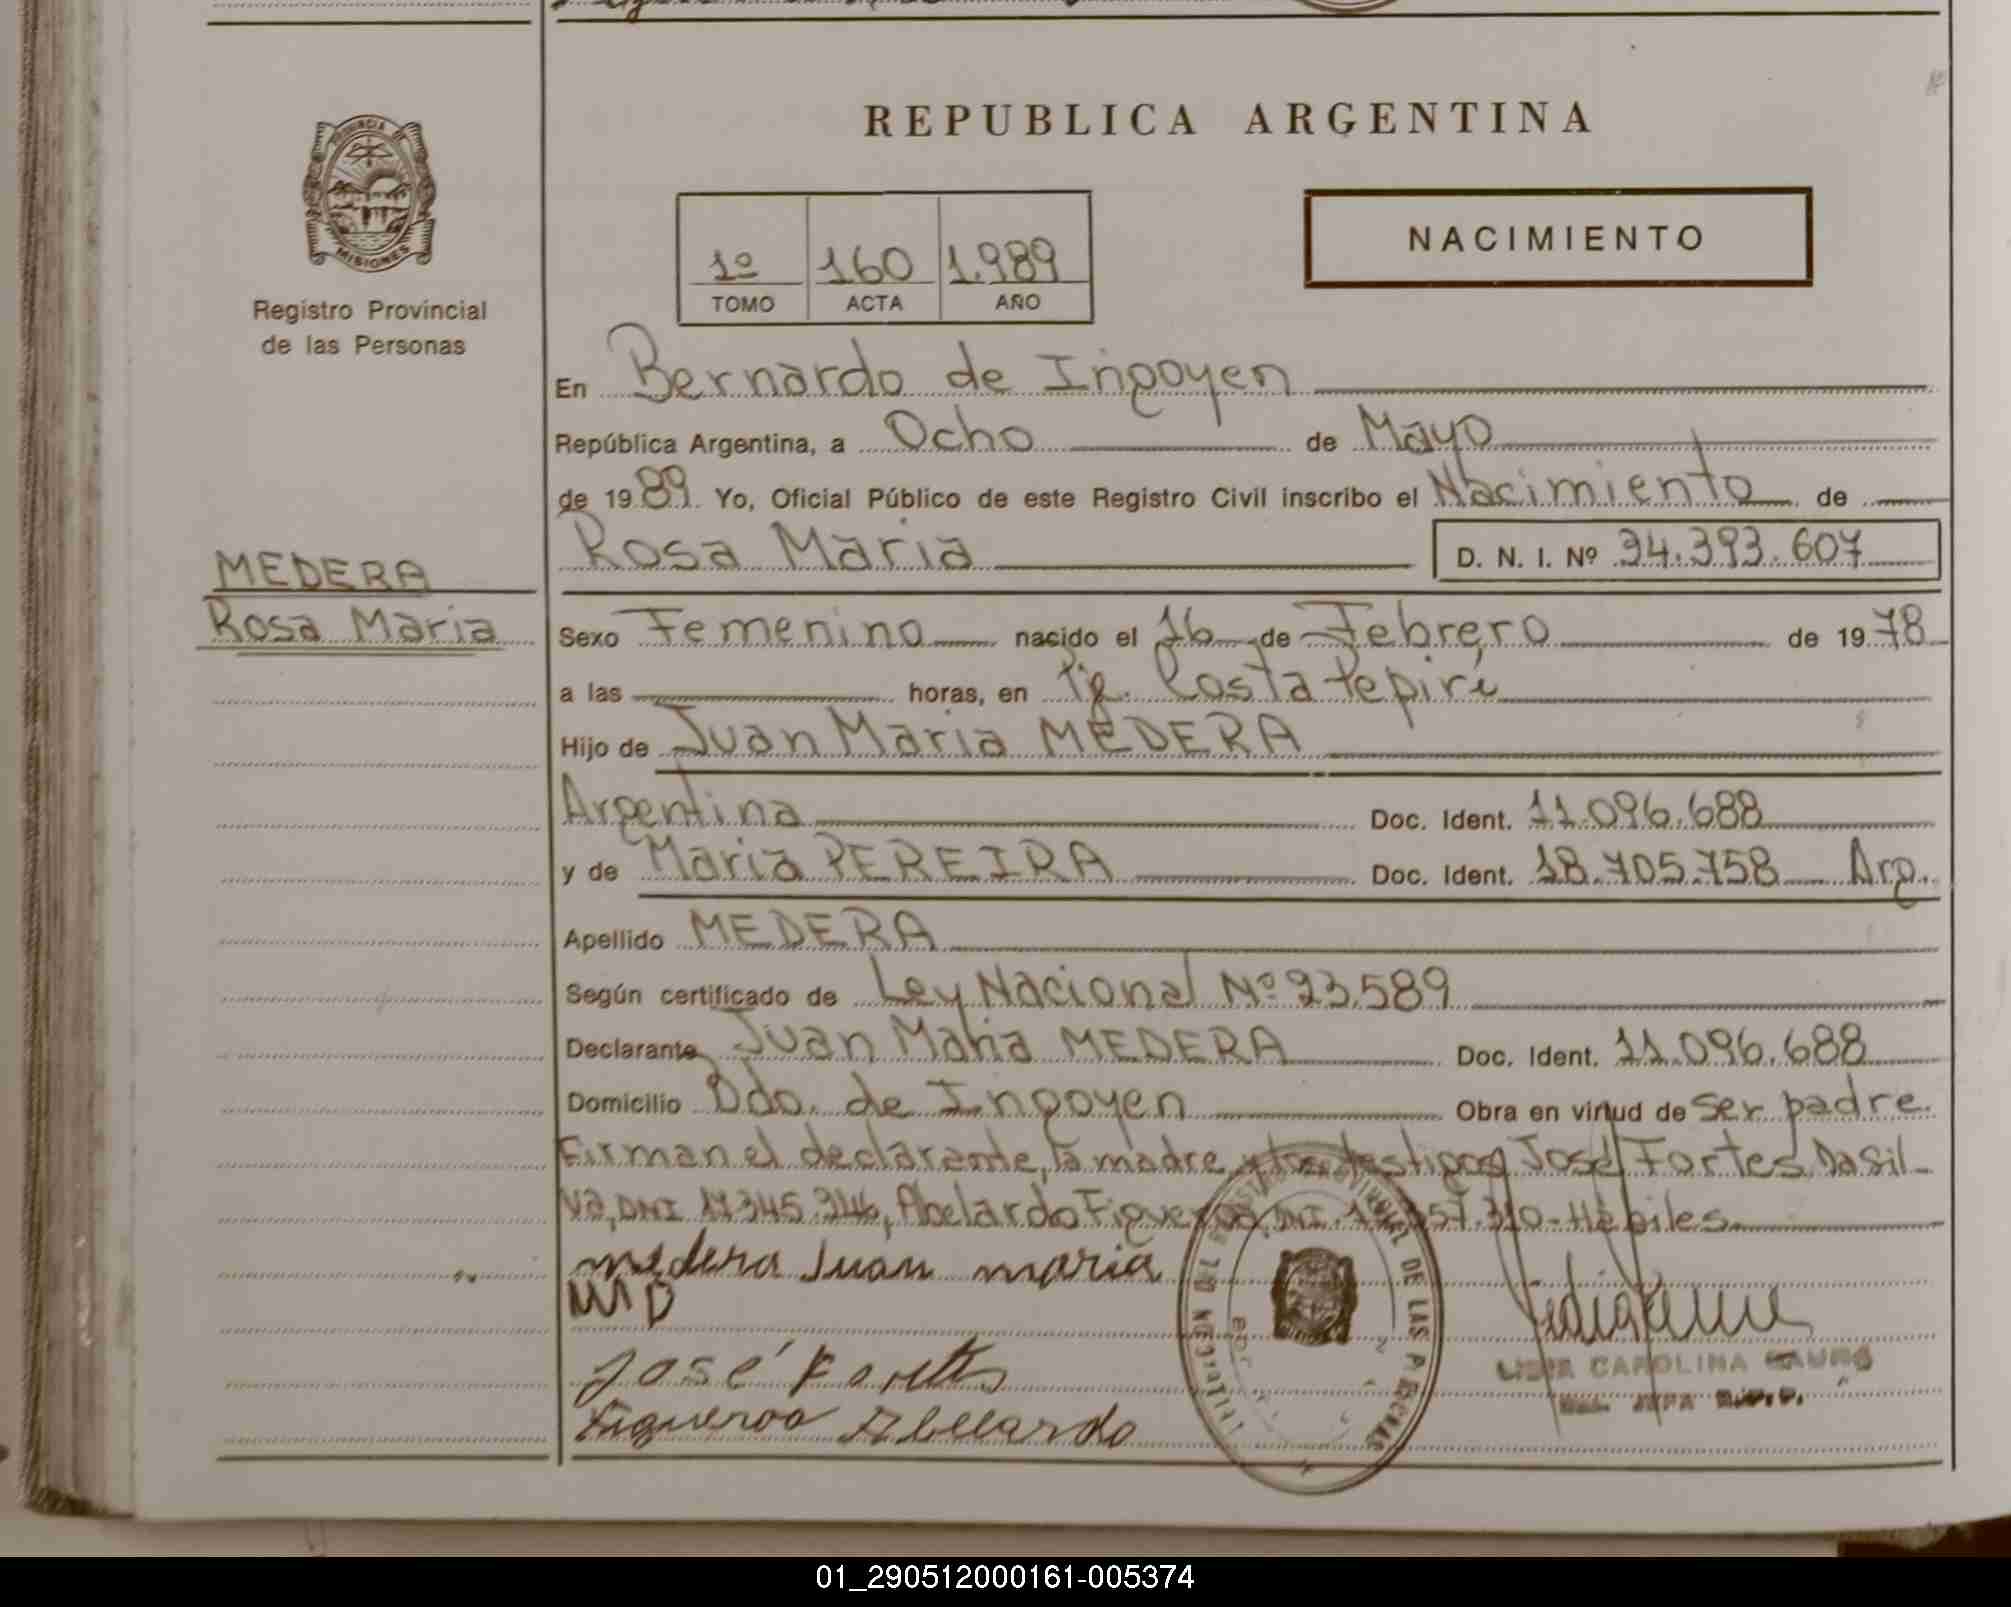 PROVINCIA DE
MISIONES
Registro Provincial
de las Personas
REPUBLICA ARGENTINA
1º 160 1.989
TOMO ACTA AÑO
NACIMIENTO
En Bernardo de Irigoyen
República Argentina, a Ocho de Mayo
de 19 89 Yo, Oficial Público de este Registro Civil inscribo el Nacimiento de
Rosa Maria D. N. I. Nº 34.393.607
MEDERA
Rosa Maria
Sexo Femenino nacido el 16 de Febrero de 19 78
a las horas, en Pje. Costa Pepirí
Hijo de Juan Maria MEDERA
Argentina Doc. Ident. 11.096.688
y de Maria PEREIRA Doc. Ident. 18.705.758 Arg.
Apellido MEDERA
Según certificado de Ley Nacional Nº 23.589
Declarante Juan Maria MEDERA Doc. Ident. 11.096.688
Domicilio Bdo. de Irigoyen Obra en virtud de ser padre.
Firman el declarante, la madre y los testigos José Fortes Dasil-
va, DNI 17.345.246, Abelardo Figueroa DNI. 357.310 - Hábiles
medera Juan maria
MP
José Fortes
Figueroa Abelardo
PROVINCIAL DE LAS PERSONAS
CAROLINA
01_290512000161-005374